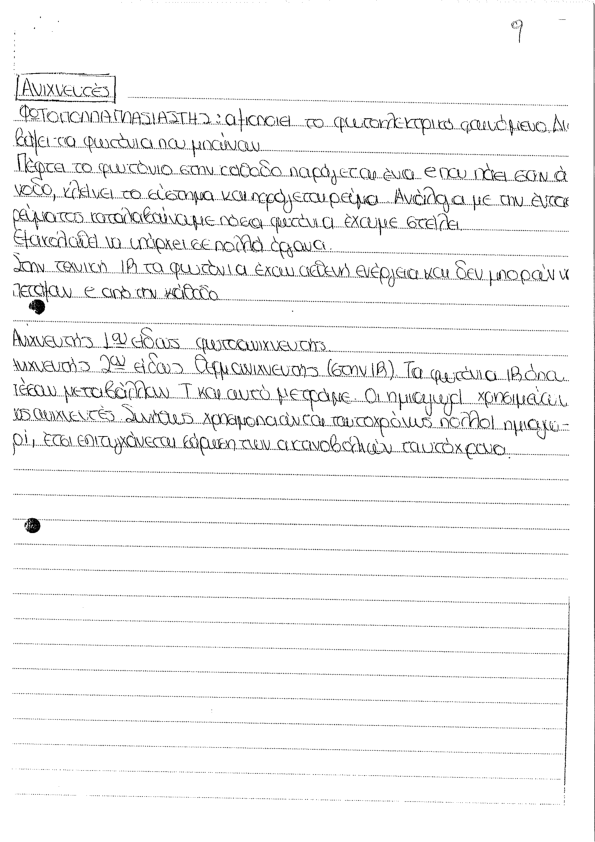 9
Ανιχνευτές
ΦΩΤΟΠΟΛΛΑΠΛΑΣΙΑΣΤΗΣ: αξιοποιεί το φωτοηλεκτρικό φαινόμενο. Δι
βάζει τα φωτόνια που μπαίνουν
Πέφτει το φωτόνιο στην κάθοδο παράγεται ένα e που πάει στην ά
νοδο, κλείνει το σύστημα και παράγεται ρεύμα. Ανάλογα με την έντασ
ρεύματος καταλαβαίνουμε πόσα φωτόνια έχουμε στείλει.
Εξακολουθεί να υπάρχει σε πολλά όργανα.
Στην τεχνική IR τα φωτόνια έχουν ασθενή ενέργεια και δεν μπορούν ν
πετάξουν e από την κάθοδο
Ανιχνευτής 1ου είδους φωτοανιχνευτής.
νιχνευτής 2ου είδους Θερμανιχνευτης (στην IR). Τα φωτόνια IR όπου
πέσουν μεταβάλλουν T και αυτό μετράμε. Οι ημιαγωγοί χρησιμεύουν
ως ανιχνευτές Συνήθως χρησιμοποιούνται ταυτοχρόνως πολλοί ημιαγω-
οί, έτσι επιτυγχάνεται σάρωση των ακτινοβολιών ταυτόχρονα.